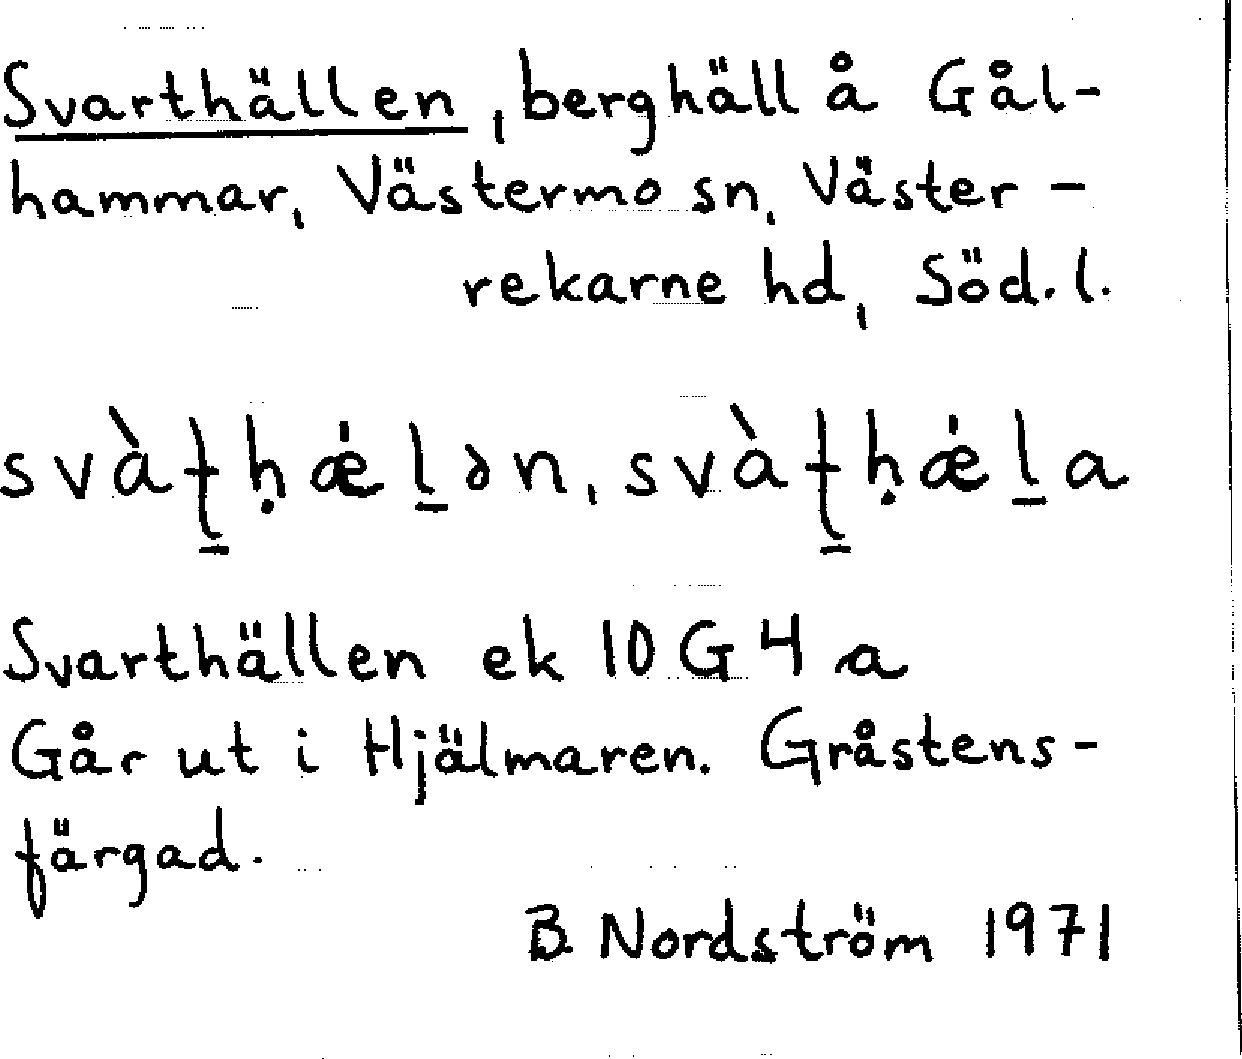 Svarthällen, berghäll å Gål-
hammar, Västermo sn, Väster-
rekarne hd, Söd. l.
svàṯḥǽḻən, svàṯḥǽḻa
Svarthällen ek 10G4a
Går ut i Hjälmaren. Gråstens-
färgad.
B Nordström 1971